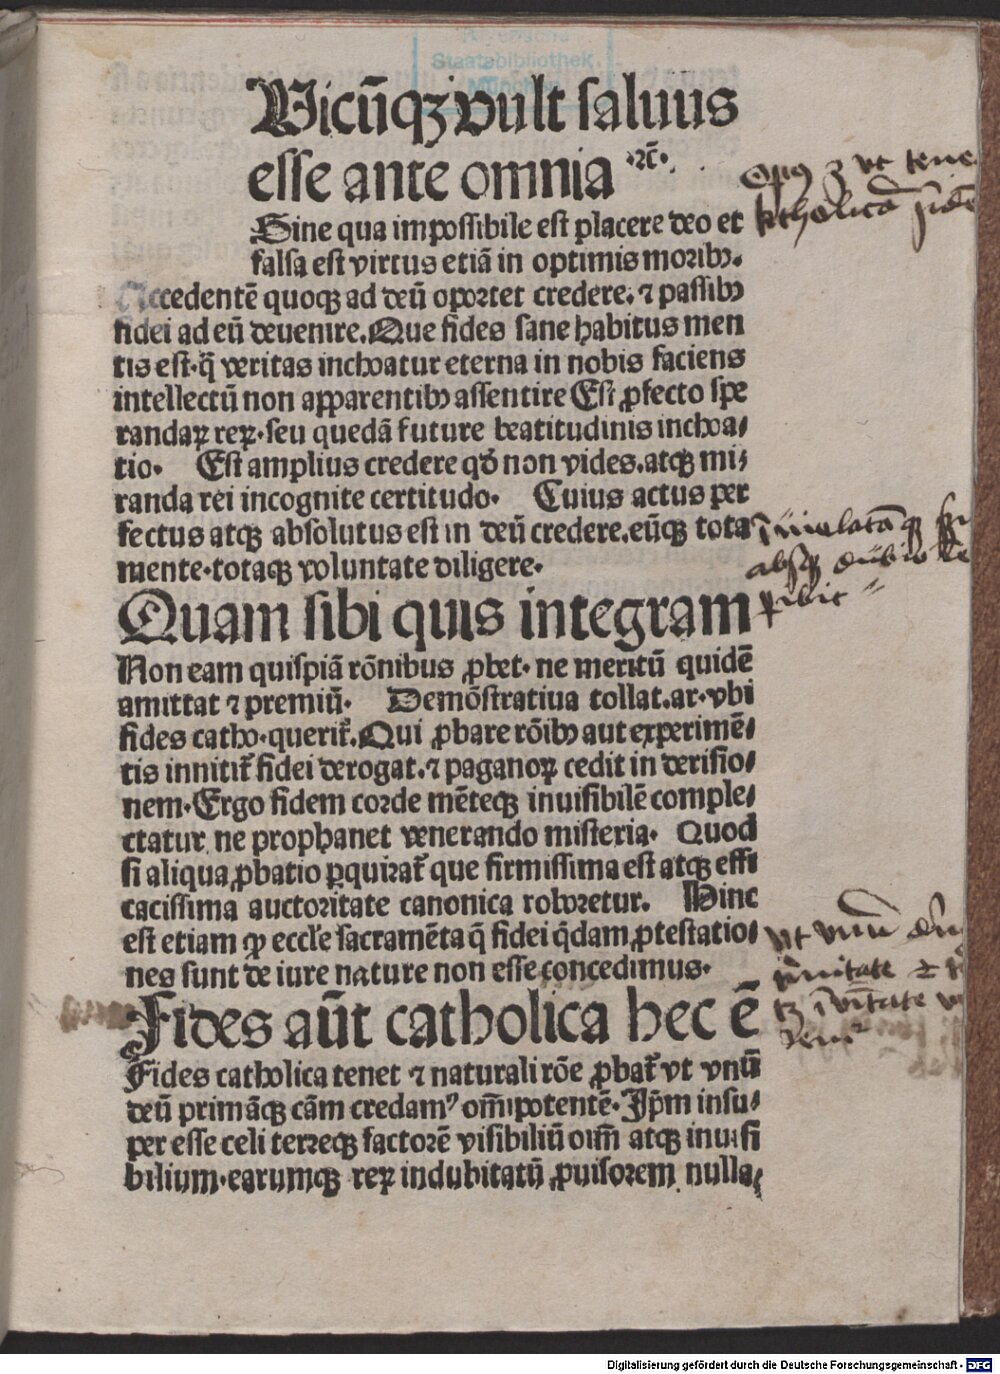 Bayerische
Staatsbibliothek
München
Wicūqꝫ vult saluus
esse ante omnia ·⁊c̄·
Sine qua impossibile est placere deo et
falsa est virtus etiā in optimis moribꝰ.
Accedentē quoqꝫ ad deū oportet credere. ⁊ passibꝰ
fidei ad eū deuenire. Que fides sane habitus men
tis est· q̄ veritas inchoatur eterna in nobis faciens
intellectū non apparentibꝰ assentire Est ꝓfecto spe
randaꝝ reꝝ· seu quedā future beatitudinis inchoa⸗
tio· Est amplius credere qđ non vides. atqꝫ mi⸗
randa rei incognite certitudo· Cuius actus per
fectus atqꝫ absolutus est in deū credere. eūqꝫ tota
mente· totaqꝫ voluntate diligere·
Quam sibi quis integram
Non eam quispiā rōnibus ꝓbet· ne meritū quidē
amittat ⁊ premiū· Demōstratiua tollat. ar· vbi
fides catho· querit᷑. Qui ꝓbare rōibꝰ aut experimē⸗
tis innitit᷑ fidei derogat. ⁊ paganoꝝ cedit in derisio⸗
nem· Ergo fidem corde mēteqꝫ inuisibilē comple⸗
ctatur ne prophanet venerando misteria· Quod
si aliqua ꝓbatio ꝑquirat᷑ que firmissima est atqꝫ effi
cacissima auctoritate canonica roboretur. Hinc
est etiam ꝙ eccl̄e sacramēta q̄ fidei q̄dam ꝓtestatio⸗
nes sunt de iure nature non esse concedimus·
Fides aūt catholica hec ē
Fides catholica tenet ⁊ naturali rōe ꝓbat᷑ vt vnū
deū primāqꝫ cām credamꝰ om̄ipotentē· Ip̄m insu⸗
per esse celi terreqꝫ factorē visibiliū oim̄ atqꝫ inuisi
bilium· earumqꝫ reꝝ indubitatū ꝓuisorem nulla⸗
opꝰ ꝫ vt tene
katholicā fidē
inuiolatāqꝫ
absqꝫ dubio
ꝑibit
vt vnū
trinitate ⁊
ī vnitate
Digitalisierung gefördert durch die Deutsche Forschungsgemeinschaft - DFG